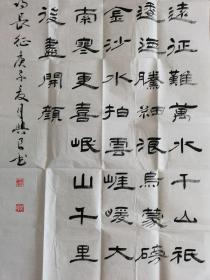 遠征難萬水千山祇
逶迤騰細浪烏蒙磅
金沙水拍雲崖暖大
索寒更喜岷山千里
後盡開顏
長征庚子夏月書